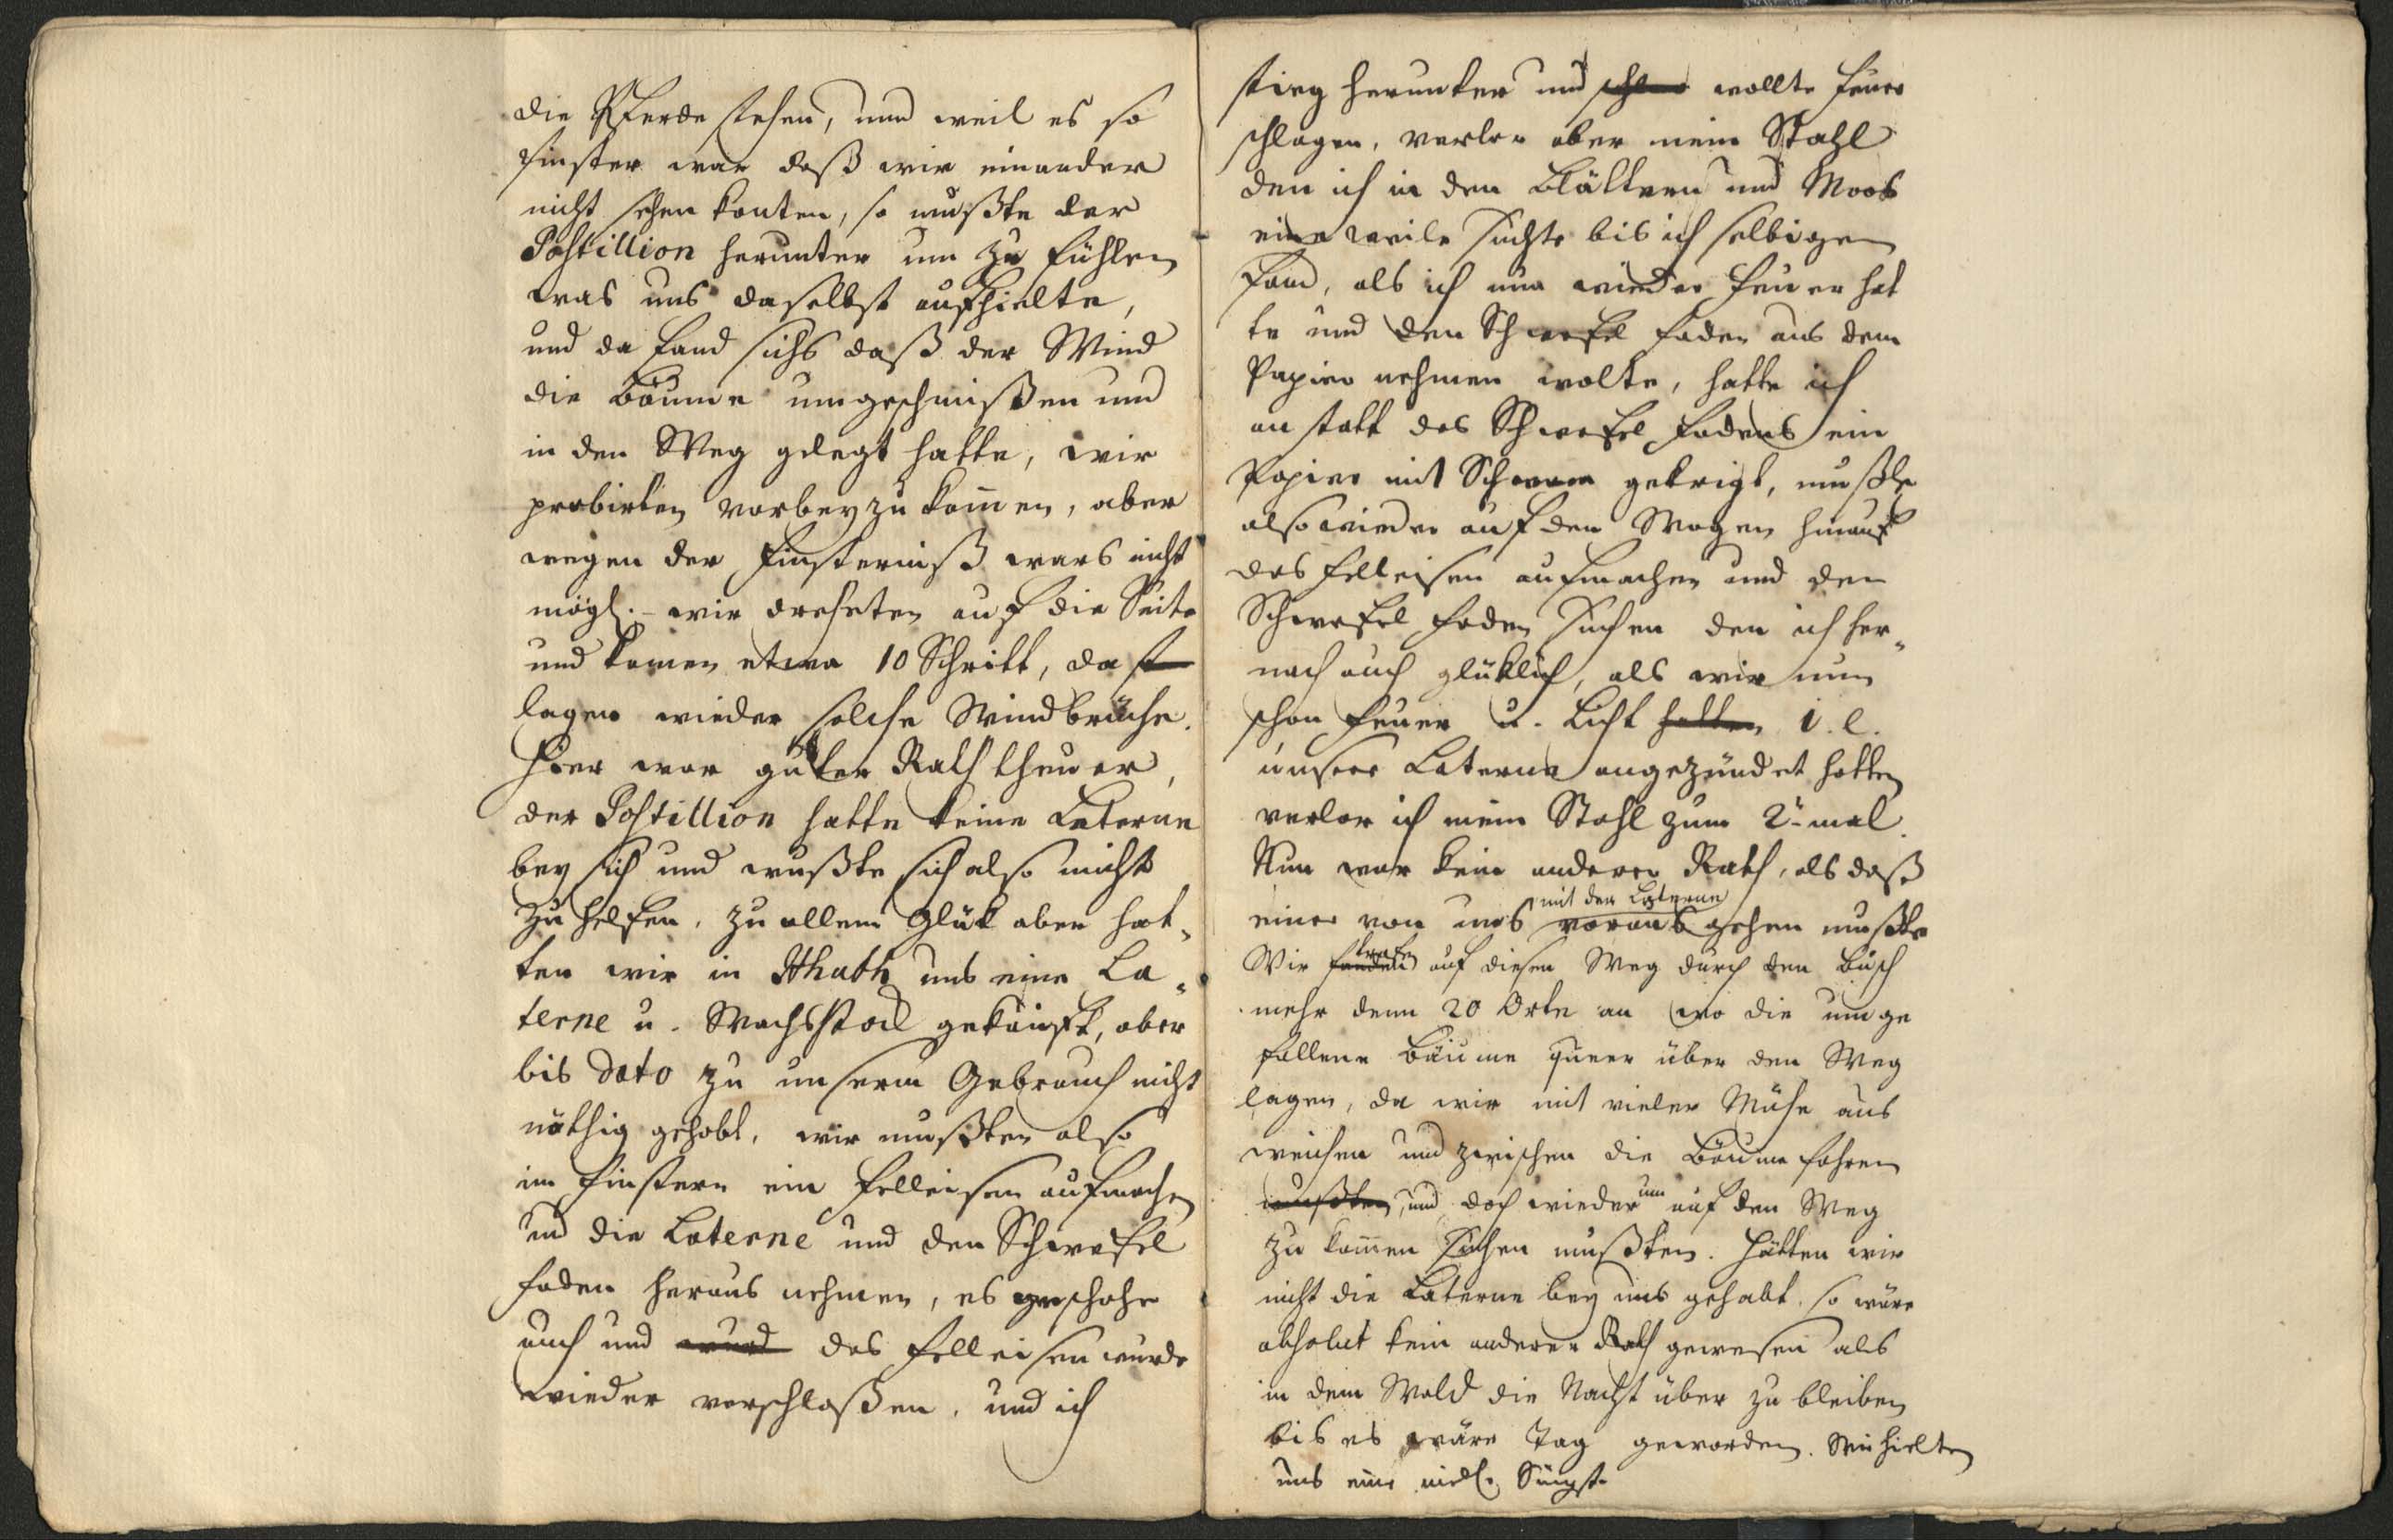 die Pferde stehen, und weil es so
finster war daß wir einander
nicht sehen konten, so mußte der
Postillion herunter um zu fühlen
was uns daselbst aufhielte,
und da fand sichs daß der Wind
die Bäume umgeschmißen und
in den Weg gelegt hatte, wir
probirten vorbey zu kom̄en, aber
wegen der Finsterniß wars nicht
mögl. wir dreheten auf die Seite
und kamen etwa 10 Schritt, da
lagen wieder solche Windbrüche.
Hier war guter Rath theuer,
der Postillion hatte keine Laterne
bey sich und wußte sich also nicht
zu helfen, zu allem Glük aber hat-
ten wir in uns eine La-
terne u. Wachsstok gekauft, aber
bis dato zu unserm Gebrauch nicht
nöthig gehabt, wir mußten also
im Finstern ein Felleisen aufmachen
und die Laterne und den Schwefel
faden heraus nehmen, es geschahe
auch und wurd das Felleisen wurde
wieder verschloßen, und ich
stieg herunter und wollte Feuer
schlagen, verlor aber mein Stahl
den ich in den Blättern und Moos
eine weile suchte bis ich selbigen
fand, als ich nun wieder Feuer hat
te und den Schwefel faden aus dem
Papier nehmen wolte, hatte ich
an statt des Schwefel fadens ein
Papier mit gekrigt, mußte
also wieder auf den Wagen hinauf
das Felleisen aufmachen und den
Schwefel faden suchen den ich her-
nach auch glüklich, als wir nun
schon Feuer u. Licht hatten i. e.
unsere Laterne angezündet hatten
verlor ich mein Stahl zum 2.-mal.
Nun war kein anderer Rath, als daß
mit der Laterne
einer von uns voraus gehen mußte
trafen
Wir fanden auf diesen Weg durch den Busch
mehr denn 20 Orte an wo die umge
fallene Bäume queer über den Weg
lagen, da wir mit vieler Mühe aus
weichen und zwischen die Bäume fahren
mußten, und doch wieder um auf den Weg
zu kom̄en suchen mußten. Hätten wir
nicht die Laterne bey uns gehabt so wäre
absolut kein anderer Rath gewesen als
in dem Wald die Nacht über zu bleiben
bis es wäre Tag geworden. Wir hielten
uns eine